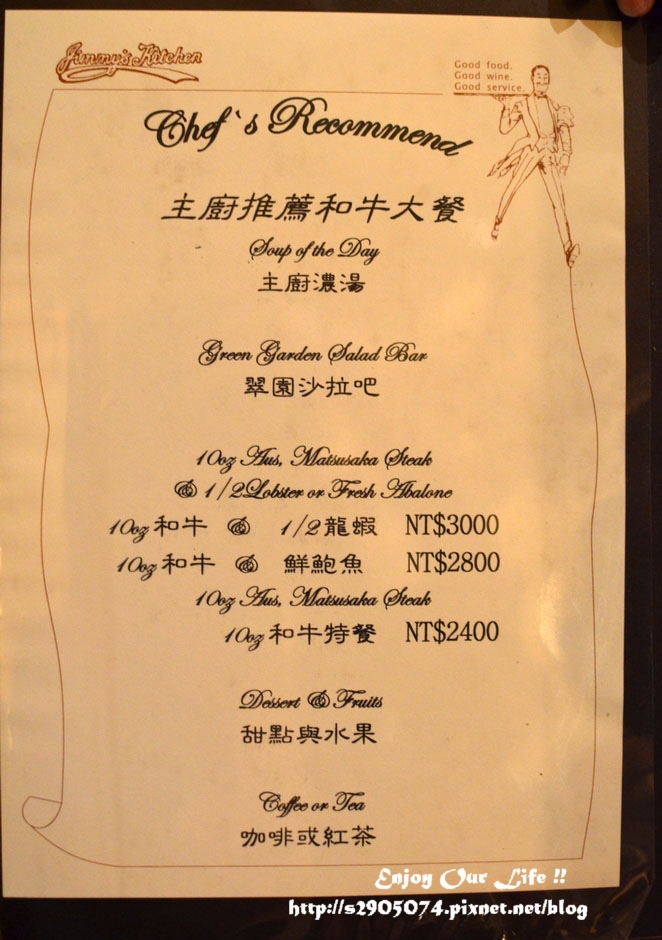 Jimmy's Kitchen
Good food.
Good wine.
Good service.
Chef`s Recommend
主廚推薦和牛大餐
Soup of the Day
主廚濃湯
Green Garden Salad Bar
翠園沙拉吧
10oz Aus, Matsusaka Steak
& 1/2Lobster or Fresh Abalone
10oz 和牛 & 1/2龍蝦 NT$3000
10oz 和牛 & 鮮鮑魚 NT$2800
10oz Aus, Matsusaka Steak
10oz 和牛特餐 NT$2400
Dessert & Fruits
甜點與水果
Coffee or Tea
咖啡或紅茶
Enjoy Our Life !!
http://s2905074.pixnet.net/blog